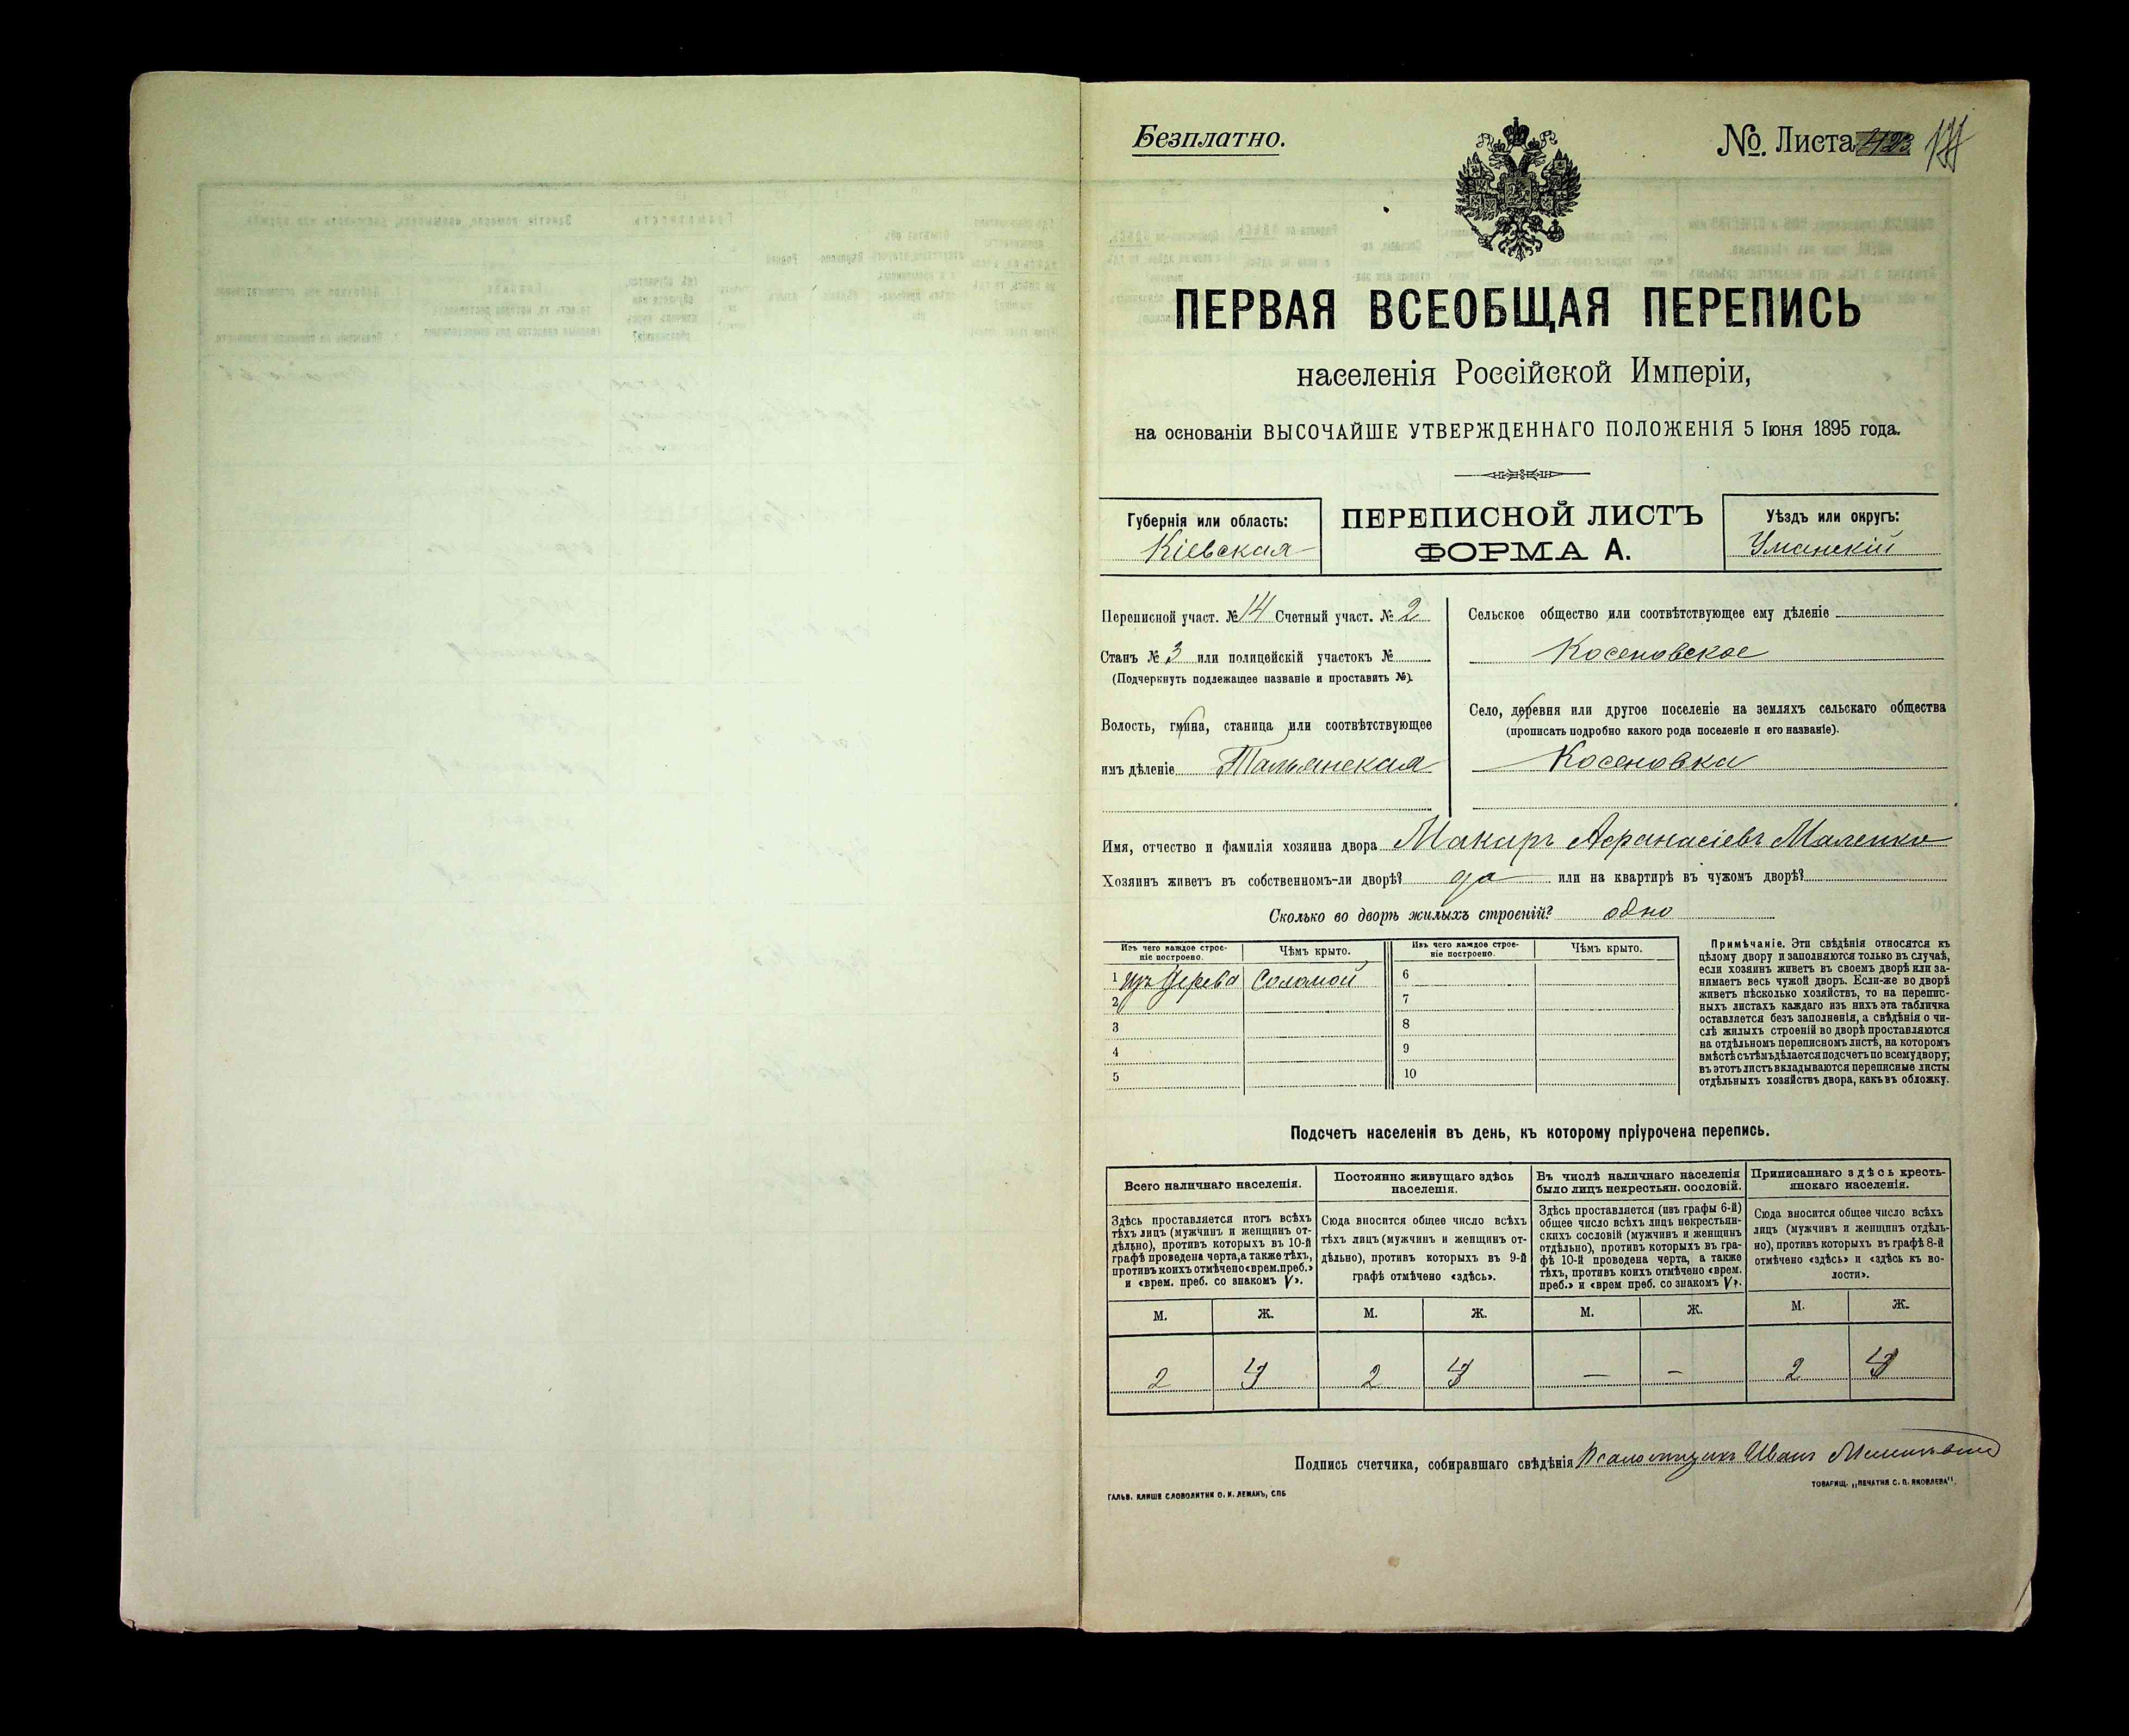 Безплатно.
№. Листа
ПЕРВАЯ ВСЕОБЩАЯ ПЕРЕПИСЬ
населенія Россійской Имперіи,
на основаніи ВЫСОЧАЙШЕ УТВЕРЖДЕННАГО ПОЛОЖЕНІЯ 5 Іюня 1895 года.
Губернія или область:
Кіевская
ПЕРЕПИСНОЙ ЛИСТЪ
ФОРМА А.
Уѣздъ или округъ:
Уманскій
Переписной участ. № 14 Счетный участ. № 2
Станъ № 3 или полицейскій участокъ №
(Подчеркнуть подлежащее названіе и проставить №).
Волость, гмина, станица или соотвѣтствующее
имъ дѣленіе Тальянская
Сельское общество или соотвѣтствующее ему дѣленіе
Косеновское
Село, деревня или другое поселеніе на земляхъ сельскаго общества
(прописать подробно какого рода поселеніе и его названіе).
Косеновка
Имя, отчество и фамилія хозяина двора Макаръ Афанасіевъ Маленко
Хозяинъ живетъ въ собственномъ-ли дворѣ? да или на квартирѣ въ чужомъ дворѣ?
Сколько во дворѣ жилыхъ строеній? одно
Изъ чего каждое строе-
ніе построено.
Чѣмъ крыто.
Изъ чего каждое строе-
ніе построено.
Чѣмъ крыто.
1 изъ дерева Соломой 6
2 7
3 8
4 9
5 10
Примѣчаніе. Эти свѣдѣнія относятся къ
цѣлому двору и заполняются только въ случаѣ,
если хозяинъ живетъ въ своемъ дворѣ или за-
нимаетъ весь чужой дворъ. Если-же во дворѣ
живетъ нѣсколько хозяйствъ, то на перепис-
ныхъ листахъ каждаго изъ нихъ эта табличка
оставляется безъ заполненія, а свѣдѣнія о чи-
слѣ жилыхъ строеній во дворѣ проставляются
на отдѣльномъ переписномъ листѣ, на которомъ
вмѣстѣ съ тѣмъ дѣлается подсчетъ по всему двору;
въ этотъ листъ вкладываются переписные листы
отдѣльныхъ хозяйствъ двора, какъ въ обложку.
Подсчетъ населенія въ день, къ которому пріурочена перепись.
Всего наличнаго населенія.
Здѣсь проставляется итогъ всѣхъ
тѣхъ лицъ (мужчинъ и женщинъ от-
дѣльно), противъ которыхъ въ 10-й
графѣ проведена черта, а также тѣхъ,
противъ коихъ отмѣчено «врем. преб.»
и «врем. преб. со знакомъ V».
Постоянно живущаго здѣсь
населенія.
Сюда вносится общее число всѣхъ
тѣхъ лицъ (мужчинъ и женщинъ от-
дѣльно), противъ которыхъ въ 9-й
графѣ отмѣчено «здѣсь».
Въ числѣ наличнаго населенія
было лицъ некрестьян. сословій.
Здѣсь проставляется (изъ графы 6-й)
общее число всѣхъ лицъ некрестьян-
скихъ сословій (мужчинъ и женщинъ
отдѣльно), противъ которыхъ въ гра-
фѣ 10-й проведена черта, а также
тѣхъ, противъ коихъ отмѣчено «врем.
преб.» и «врем преб. со знакомъ V».
Приписаннаго здѣсь кресть-
янскаго населенія.
Сюда вносится общее число всѣхъ
лицъ (мужчинъ и женщинъ отдѣль-
но), противъ которыхъ въ графѣ 8-й
отмѣчено «здѣсь» и «здѣсь къ во-
лости».
М. Ж. М. Ж. М. Ж. М. Ж.
2 2 — — 2
Подпись счетчика, собиравшаго свѣдѣнія Иванъ
ГАЛЬВ. КЛИШЕ СЛОВОЛИТНИ О. И. ЛЕМАНЪ, СПБ
ТОВАРИЩ. „ПЕЧАТНЯ С. П. ЯКОВЛЕВА".